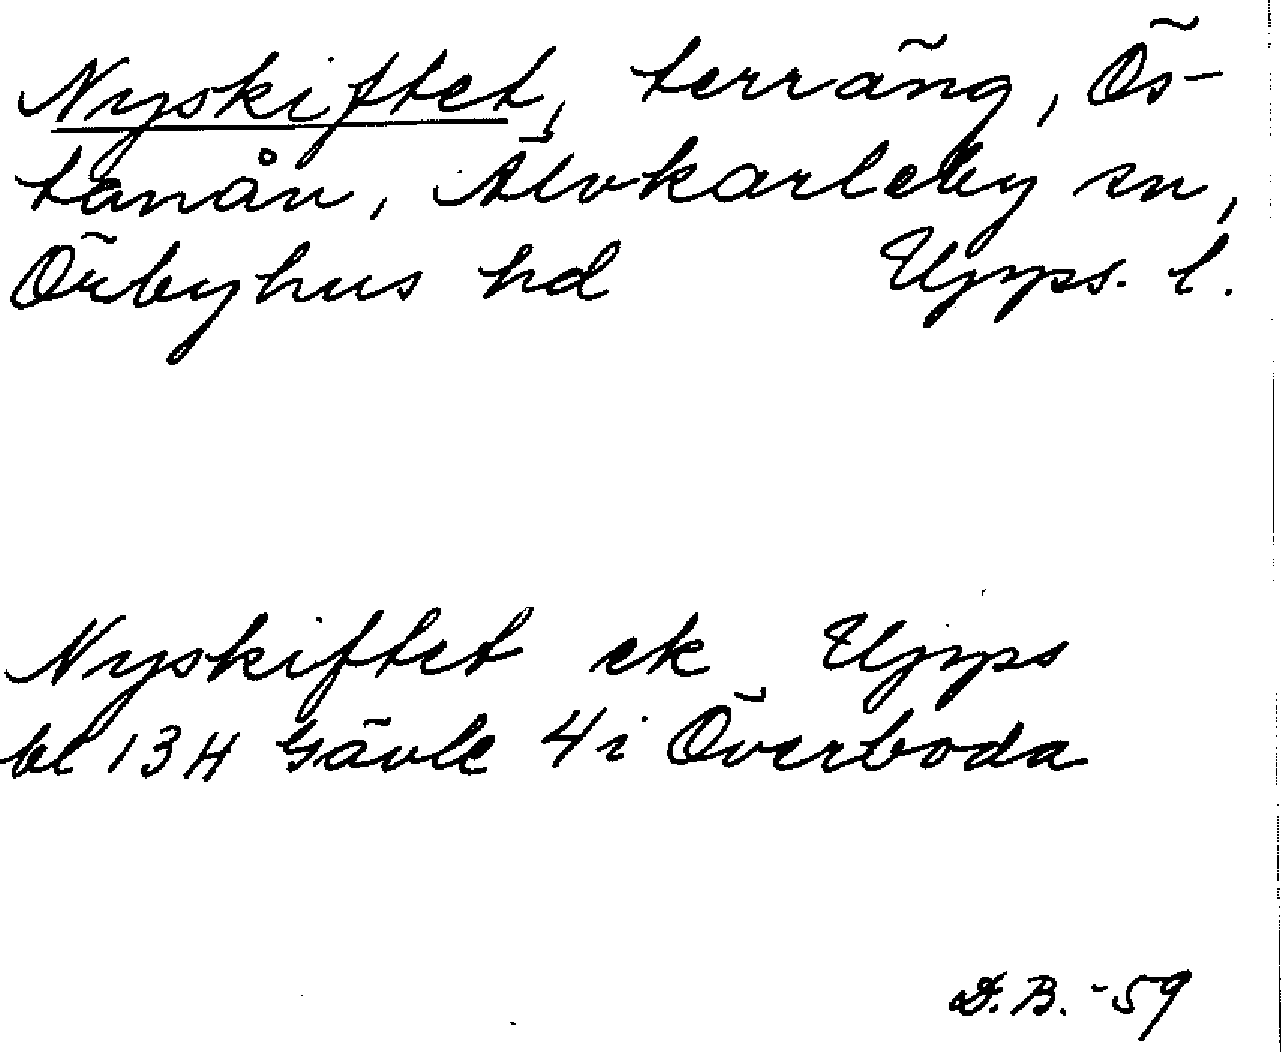 Nyskiftet, terräng, Ös-
tanån, Älvkarleby sn,
Örbyhus hd Upps. l.
Nyskiftet ek Upps
bl 13H Gävle 4i Överboda
D.B. -59